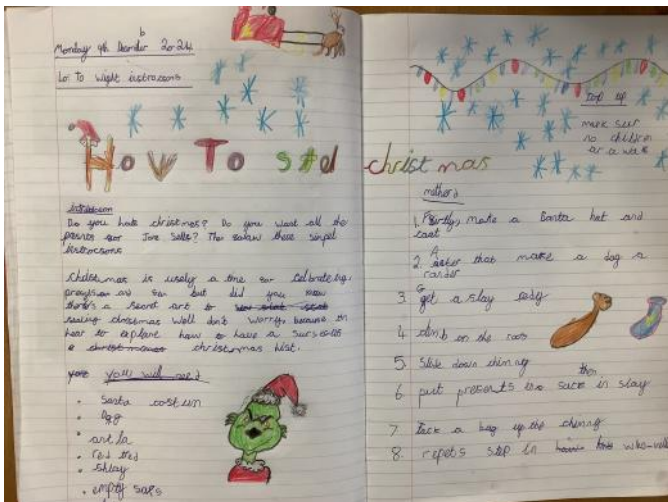 Monday 9th December 2024
Lo To Wight instructions
How To steal christmas
introduction
Do you hate christmas? Do you want all the
presnts for Jore Selfs? The folow these simpel
instrucsons
christmas is usely a time for celebrating,
and but did you know
there's a secret art to
christmas well don't worry, because im
hear to explane how to have a
a christmas hist.
you will need
• Santa costum
• Dog
• antla
• red thed
• Slay
• empty saks
Top tip
make suer
no children
ar a wak
method
1. Firstly, make a Santa hat and
coat
2. After that make a dog a
rander
3. get a slay redy
4. climb on the roof
5. Slide down chimny
6. put presents in sack then in slay
7. Tack a bag up the chimny
8. repets step in who-vill